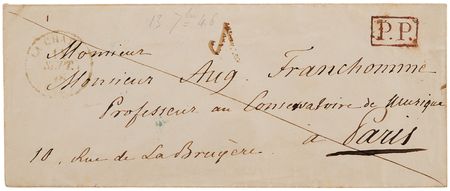 13 7bre 48
P.P.
LA CHÂTRE
SEPT.
Monsieur
Monsieur Aug. Franchomme
Professeur au Conservatoire de Musique
à Paris
10, Rue de La Bruyère.